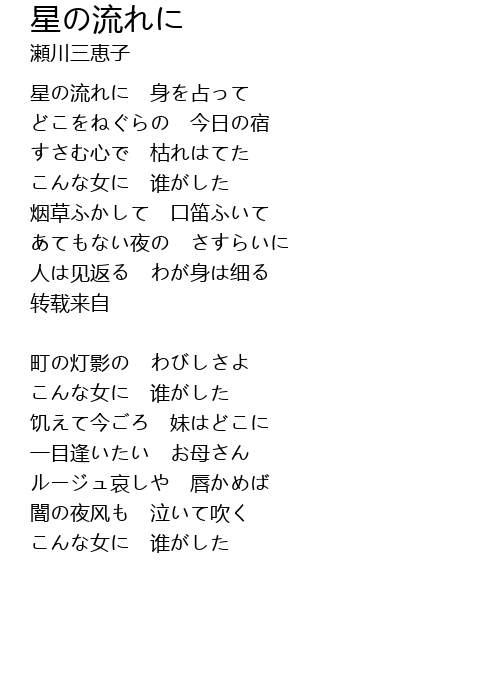 星の流れに
瀬川三恵子
星の流れに　身を占って
どこをねぐらの　今日の宿
すさむ心で　枯れはてた
こんな女に　誰がした
烟草ふかして　口笛ふいて
あてもない夜の　さすらいに
人は见返る　わが身は细る
转载来自
町の灯影の　わびしさよ
こんな女に　誰がした
饥えて今ごろ　妹はどこに
一目逢いたい　お母さん
ルージュ哀しや　唇かめば
闇の夜风も　泣いて吹く
こんな女に　誰がした